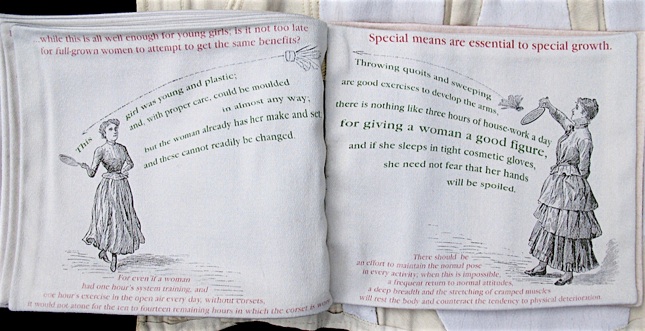 while this is all well enough for young girls; Is it not too late
for full-grown women to attempt to get the same benefits?
This girl was young and plastic;
and, with proper care, could be moulded
in almost any way;
but the woman already has her make and set,
and these cannot readily be changed.
For even if a woman
had one hour's system training, and
one hour's exercise in the open air every day, without corsets,
it would not atone for the ten to fourteen remaining hours in which the corset is
Special means are essential to special growth.
Throwing quoits and sweeping
are good exercises to develop the arms,
there is nothing like three hours of house-work a day
for giving a woman a good figure,
and if she sleeps in tight cosmetic gloves,
she need not fear that her hands
will be spoiled.
There should be
an effort to maintain the normal pose
in every activity; when this is impossible,
a frequent return to normal attitudes,
a sleep breadth and the stretching of cramped muscles
will rest the body and counteract the tendency to physical deterioration.